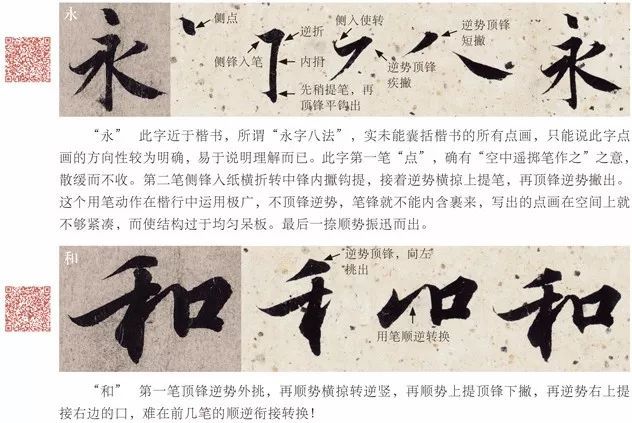 永
侧点
侧锋入笔
逆折
内捎
先稍提笔，再
顶锋平钩出
侧入使转
逆势顶锋
疾撇
逆势顶锋
短撇
永
永
“永” 此字近于楷书，所谓“永字八法”，实未能囊括楷书的所有点画，只能说此字点
画的方向性较为明确，易于说明理解而已。此字第一笔“点”，确有“空中遥掷笔作之”之意，
散缓而不收。第二笔侧锋入纸横折转中锋内擫钩提，接着逆势横掠上提笔，再顶锋逆势撇出。
这个用笔动作在楷行中运用极广，不顶锋逆势，笔锋就不能内含裹来，写出的点画在空间上就
不够紧凑，而使结构过于均匀呆板。最后一捺顺势振迅而出。
和
逆势顶锋，向左
挑出
用笔顺逆转换
和
和
“和” 第一笔顶锋逆势外挑，再顺势横掠转逆竖，再顺势上提顶锋下撇，再逆势右上提
接右边的口，难在前几笔的顺逆衔接转换！